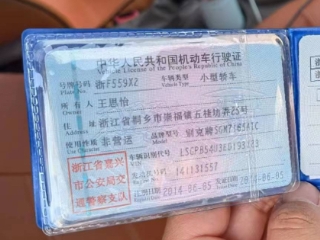 中华人民共和国机动车行驶证
Vehicle License of the People's Republic of China
号牌号码 浙F559XZ 车辆类型 小型轿车
Plate No. Vehicle Type
所有人 王恩怡
Owner
住址 浙江省桐乡市崇福镇五栈坊弄25号
Address
使用性质 非营运 品牌型号 别克牌
Use Character Model
浙江省嘉兴 车辆识别代号
市公安局交 发动机号码 141131557
通警察支队 注册日期 2014-06-05 发证日期